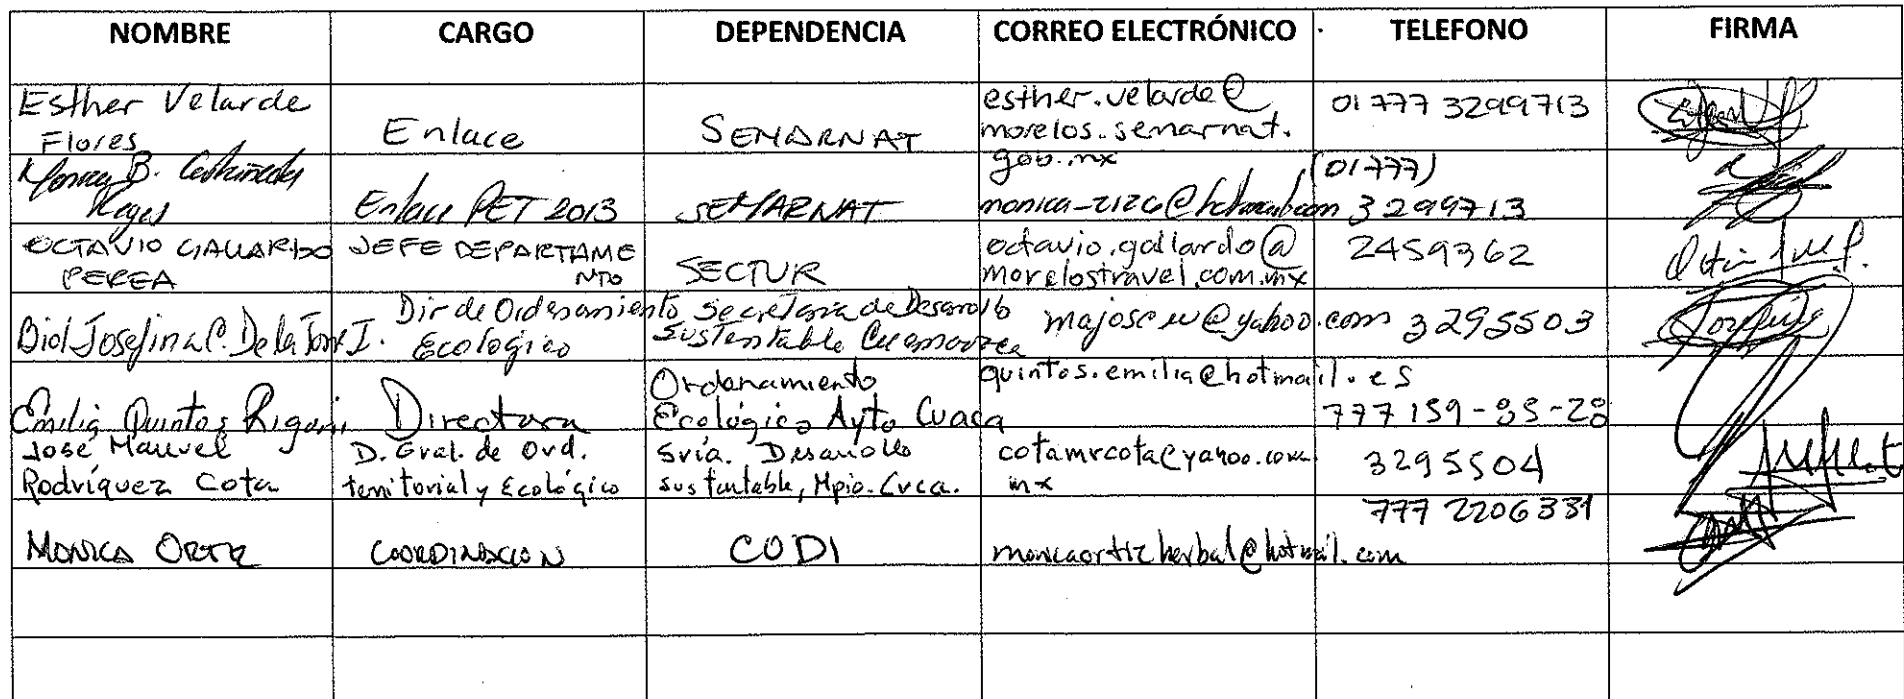 NOMBRE CARGO DEPENDENCIA CORREO ELECTRÓNICO TELEFONO FIRMA
Esther Velarde Flores Enlace SEMARNAT esther.velarde@ morelos.semarnat. gob.mx 01777 3299713
B. Castañeda Reyes Enlace PET 2013 SEMARNAT monica-2126@hotmail.com (01777) 3299713
OCTAVIO GALLARDO PEREA JEFE DEPARTAME NTO SECTUR octavio.gallardo@ morelostravel.com.mx 2459362
Biol Josefina C. De la Torre I. Dir de Ordenamiento Ecológico Secretaría de Desarrollo Sustentable Cuernavaca @yahoo.com 3295503
Emilia Quintos Directora Ordenamiento Ecológico Ayto Cuaca quintos.emilia@hotmail.es 777 159-85-28
José Manuel Rodríguez Cota D. Gral. de Ord. territorial y Ecológico Sría. Desarrollo sustentable, Mpio. Cvca. cotamrcota@yahoo.com mx 3295504
MONICA ORTIZ COORDINACION CODI monicaortizherbal@hotmail.com 777 2206331